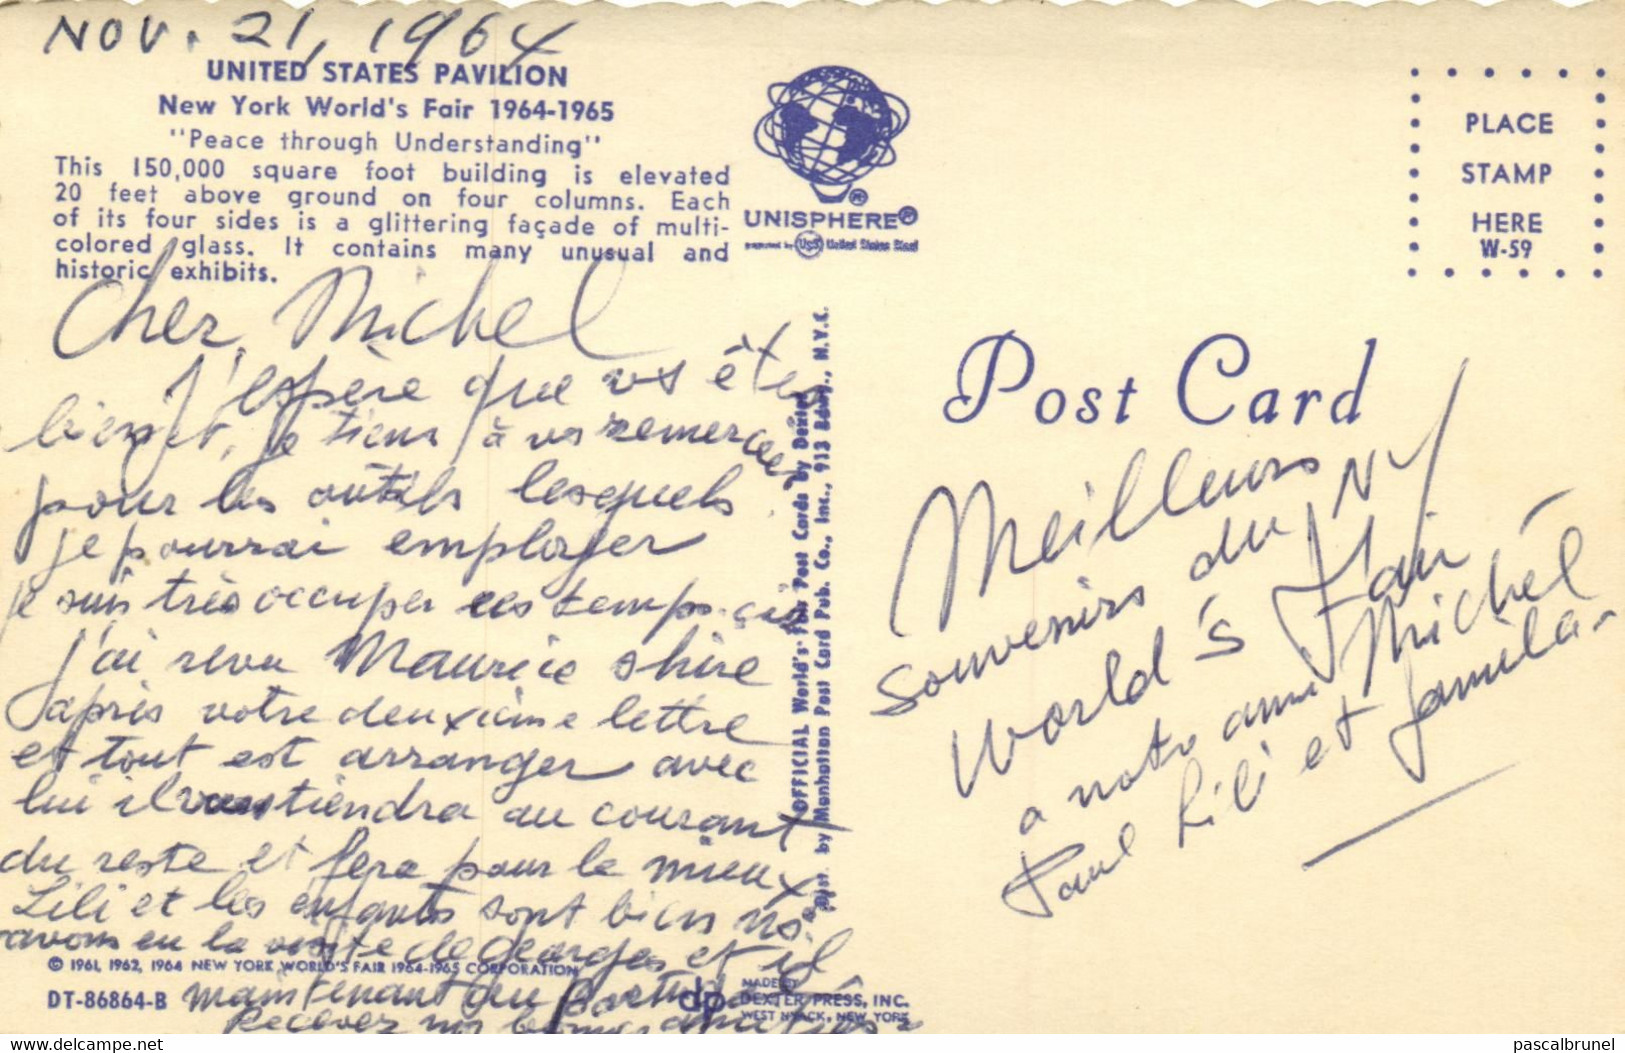 NOV. 21, 1964
UNITED STATES PAVILION
New York World's Fair 1964-1965
"Peace through Understanding"
This 150,000 square foot building is elevated
20 feet above ground on four columns. Each
of its four sides is a glittering façade of multi-
colored glass. It contains many unusual and
historic exhibits.
UNISPHERE®
presented by USS United States Steel
PLACE
STAMP
HERE
W-59
Post Card
Cher Michel
J'espère que vs êtes
bien et, je tiens à vs remercier
pour les outils lesquels
je pourrai employer
je suis très occuper ces temps-ci
j'ai revu Maurice Shire
après votre deuxième lettre
et tout est arranger avec
lui il vous tiendra au courant
du reste et fera pour le mieux
Lili et les enfants sont bien ns.
avons eu la visite de Georges et il
maintenant au Portugal
Recevez nos bonnes amitiés
OFFICIAL World's Fair Post Cards by Dexter
Dist. by Manhattan Post Card Pub. Co., Inc., 913 Bdwy., N.Y.C.
© 1961, 1962, 1964 NEW YORK WORLD'S FAIR 1964-1965 CORPORATION
DT-86864-B
dp
MADE BY
DEXTER PRESS, INC.
WEST NYACK, NEW YORK
Meilleurs
souvenirs du NY
World's Fair
a notre ami Michel
Paul Lili et familia.
pascalbrunel